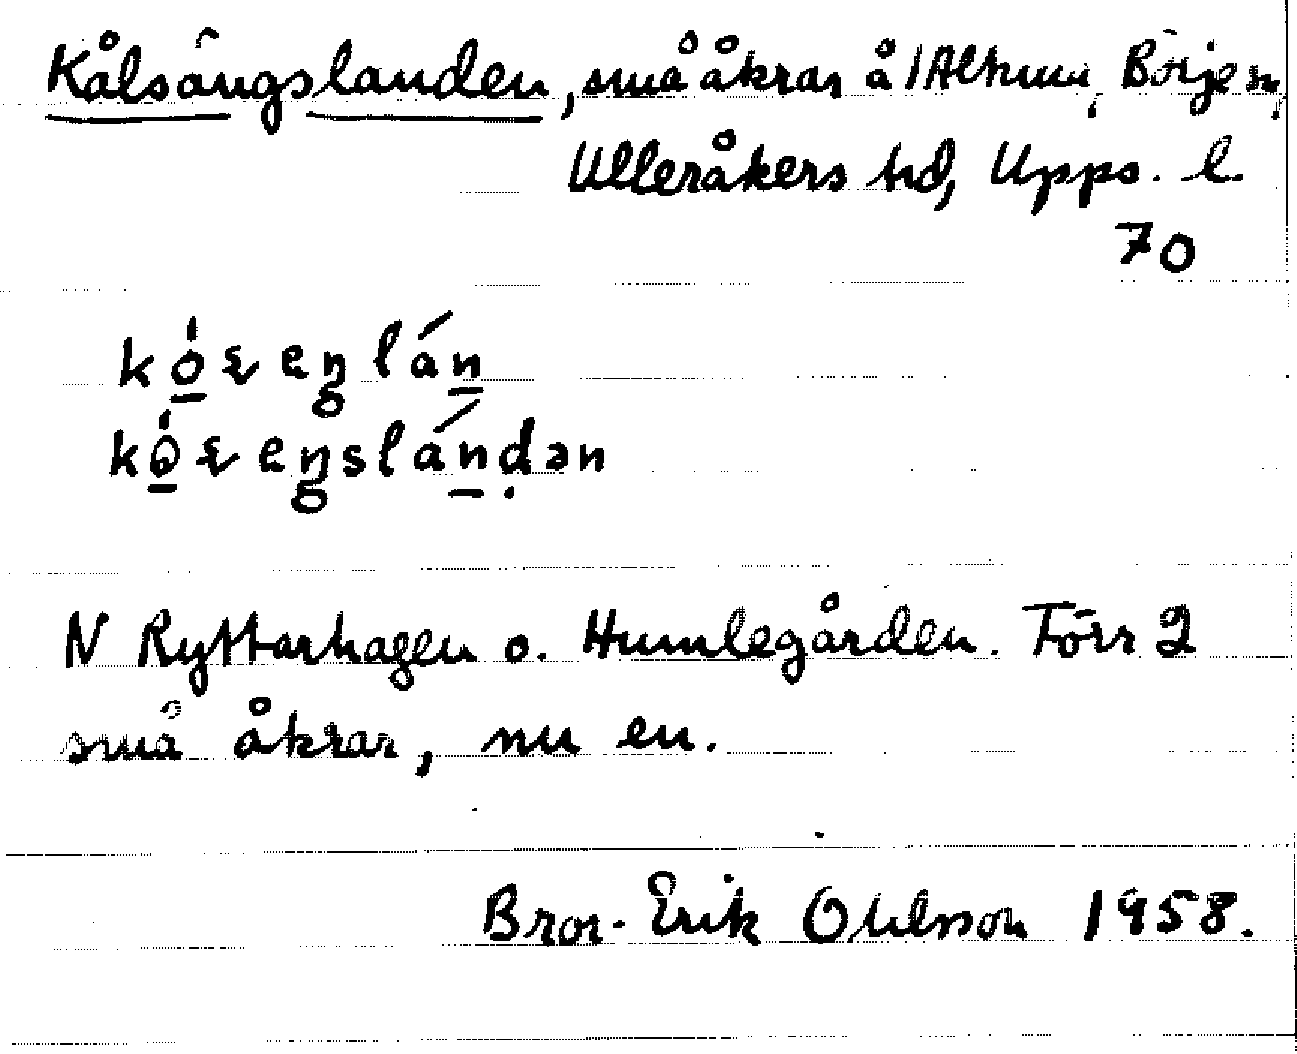 Kålsängslanden, små åkrar å 1 Altuna, Börje sn,
Ulleråkers hd, Upps. l.
70
N Ryttarhagen o. Humlegården. Förr 2
små åkrar, nu en.
Bror-Erik Ohlsson 1958.